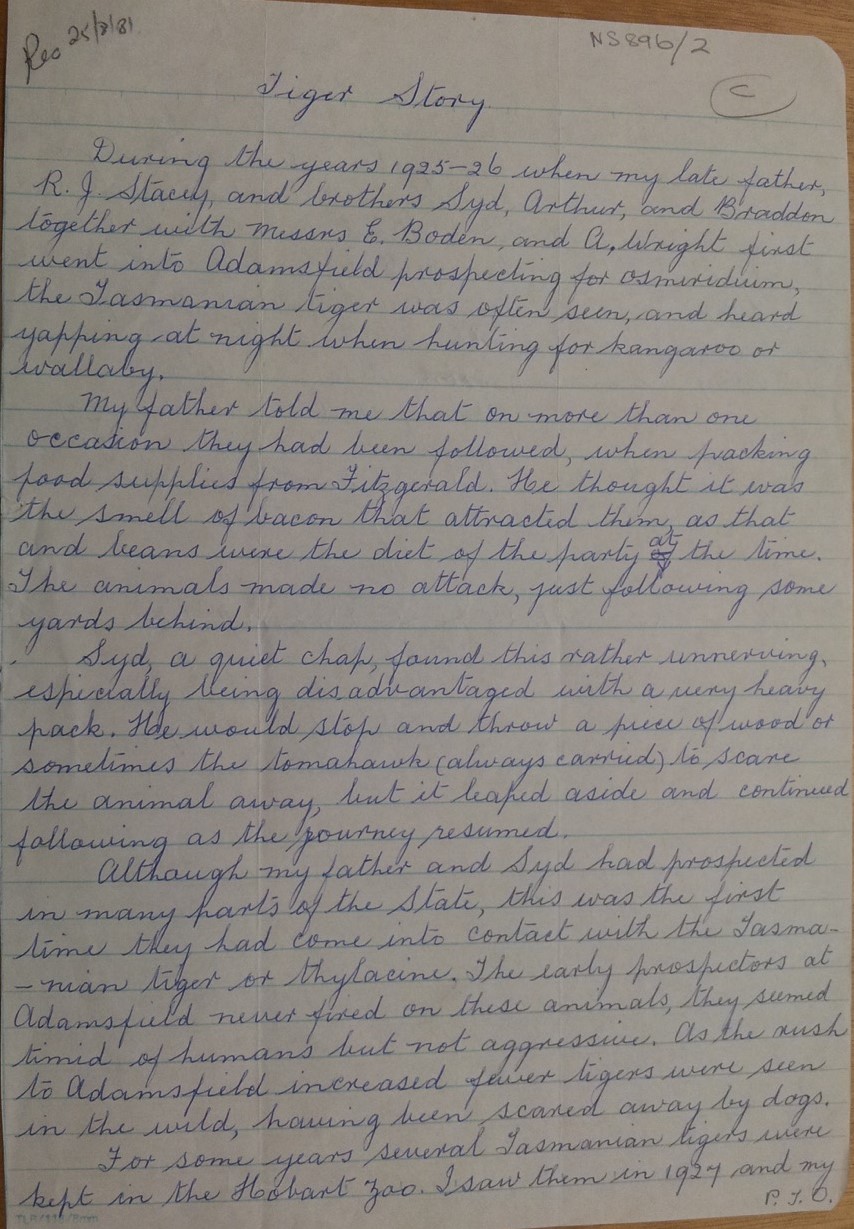 Rec 25/8/81
NS896/2
C
Tiger Story.
During the years 1925-26 when my late father,
R. J. Stacey, and brothers Syd, Arthur, and Braddon
together with Messrs E. Boden, and A. Wright first
went into Adamsfield prospecting for osmiridium,
the Tasmanian tiger was often seen, and heard
yapping at night when hunting for kangaroo or
wallaby.
My father told me that on more than one
occasion they had been followed, when packing
food supplies from Fitzgerald. He thought it was
the smell of bacon that attracted them, as that
and beans were the diet of the party at the time.
The animals made no attack, just following some
yards behind.
Syd, a quiet chap, found this rather unnerving,
especially being disadvantaged with a very heavy
pack. He would stop and throw a piece of wood or
sometimes the tomahawk (always carried) to scare
the animal away, but it leaped aside and continued
following as the journey resumed.
Although my father and Syd had prospected
in many parts of the State, this was the first
time they had come into contact with the Tasma-
-nian tiger or thylacine. The early prospectors at
Adamsfield never fired on these animals, they seemed
timid of humans but not aggressive. As the rush
to Adamsfield increased fewer tigers were seen
in the wild, having been scared away by dogs.
For some years several Tasmanian tigers were
kept in the Hobart Zoo. I saw them in 1927 and my
P.T.O.